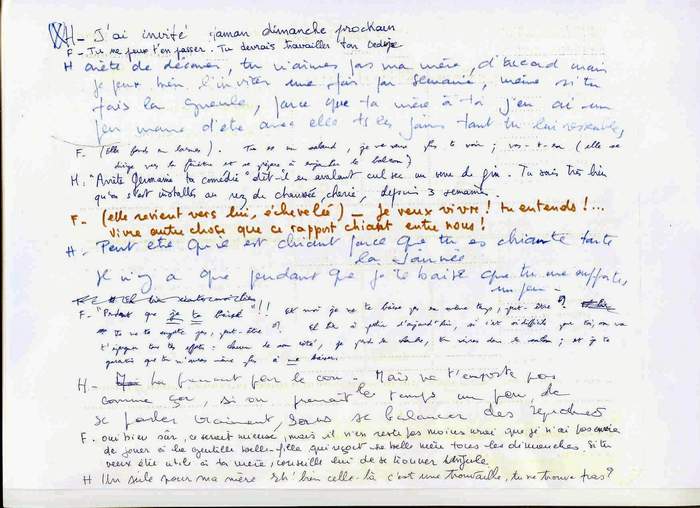 H - J'ai invité maman dimanche prochain
F - Tu ne peux t'en passer. Tu devrais travailler ton Oedipe
H arête de déconner, tu n'aimes pas ma mère, d'accord mais
je peux bien l'inviter une fois par semaine, même si tu
fais la gueule, parce que ta mère à toi j'en ai un
peu marre d'être avec elle ts les jours tant tu lui ressembles
F. (elle fond en larmes). Tu es un salaud, je ne veux plus te voir; vas-t-en (elle se
dirige vers la fenêtre et se prépare à enjamber le balcon)
H. "Arrête Germaine ta comédie" dit-il en avalant cul sec un verre de gin. Tu sais très bien
qu'on s'est installés au rez de chaussée, chérie, depuis 3 semaines.
F - (elle revient vers lui, échevelée) - Je veux vivre! tu entends!...
vivre autre chose que ce rapport chiant entre nous!
H - Peut être qu'il est chiant parce que tu es chiante toute
la journée
Il n'y a que pendant que je te baise que tu me supportes,
un peu -
F - "Pendant que je te baise"!! Et moi je ne te baise pas en même temps, peut-être?
tu ne te rends compte que, peut-être? Et bien à partir d'aujourd'hui, si c'est si difficile que ça, on va
s'épargner tous ces efforts - chacun de son côté, je prends la chambre, tu vires dans le salon; et je te
garantis que tu n'auras même plus à me baiser.
H - me prenant par le cou - Mais ne t'emporte pas
comme ça, si on prenait le temps un peu de
se parler vraiment, sans se balancer des
F. oui bien sûr, ce serait mieux, mais il n'en reste pas moins vrai que je n'ai pas envie
de jouer à la gentille belle-fille qui reçoit sa belle mère tous les dimanches. Si tu
veux être utile à ta mère, conseille lui de se trouver un jule
H Un jule pour ma mère Eh! bien celle-là c'est une trouvaille, tu ne trouve pas?